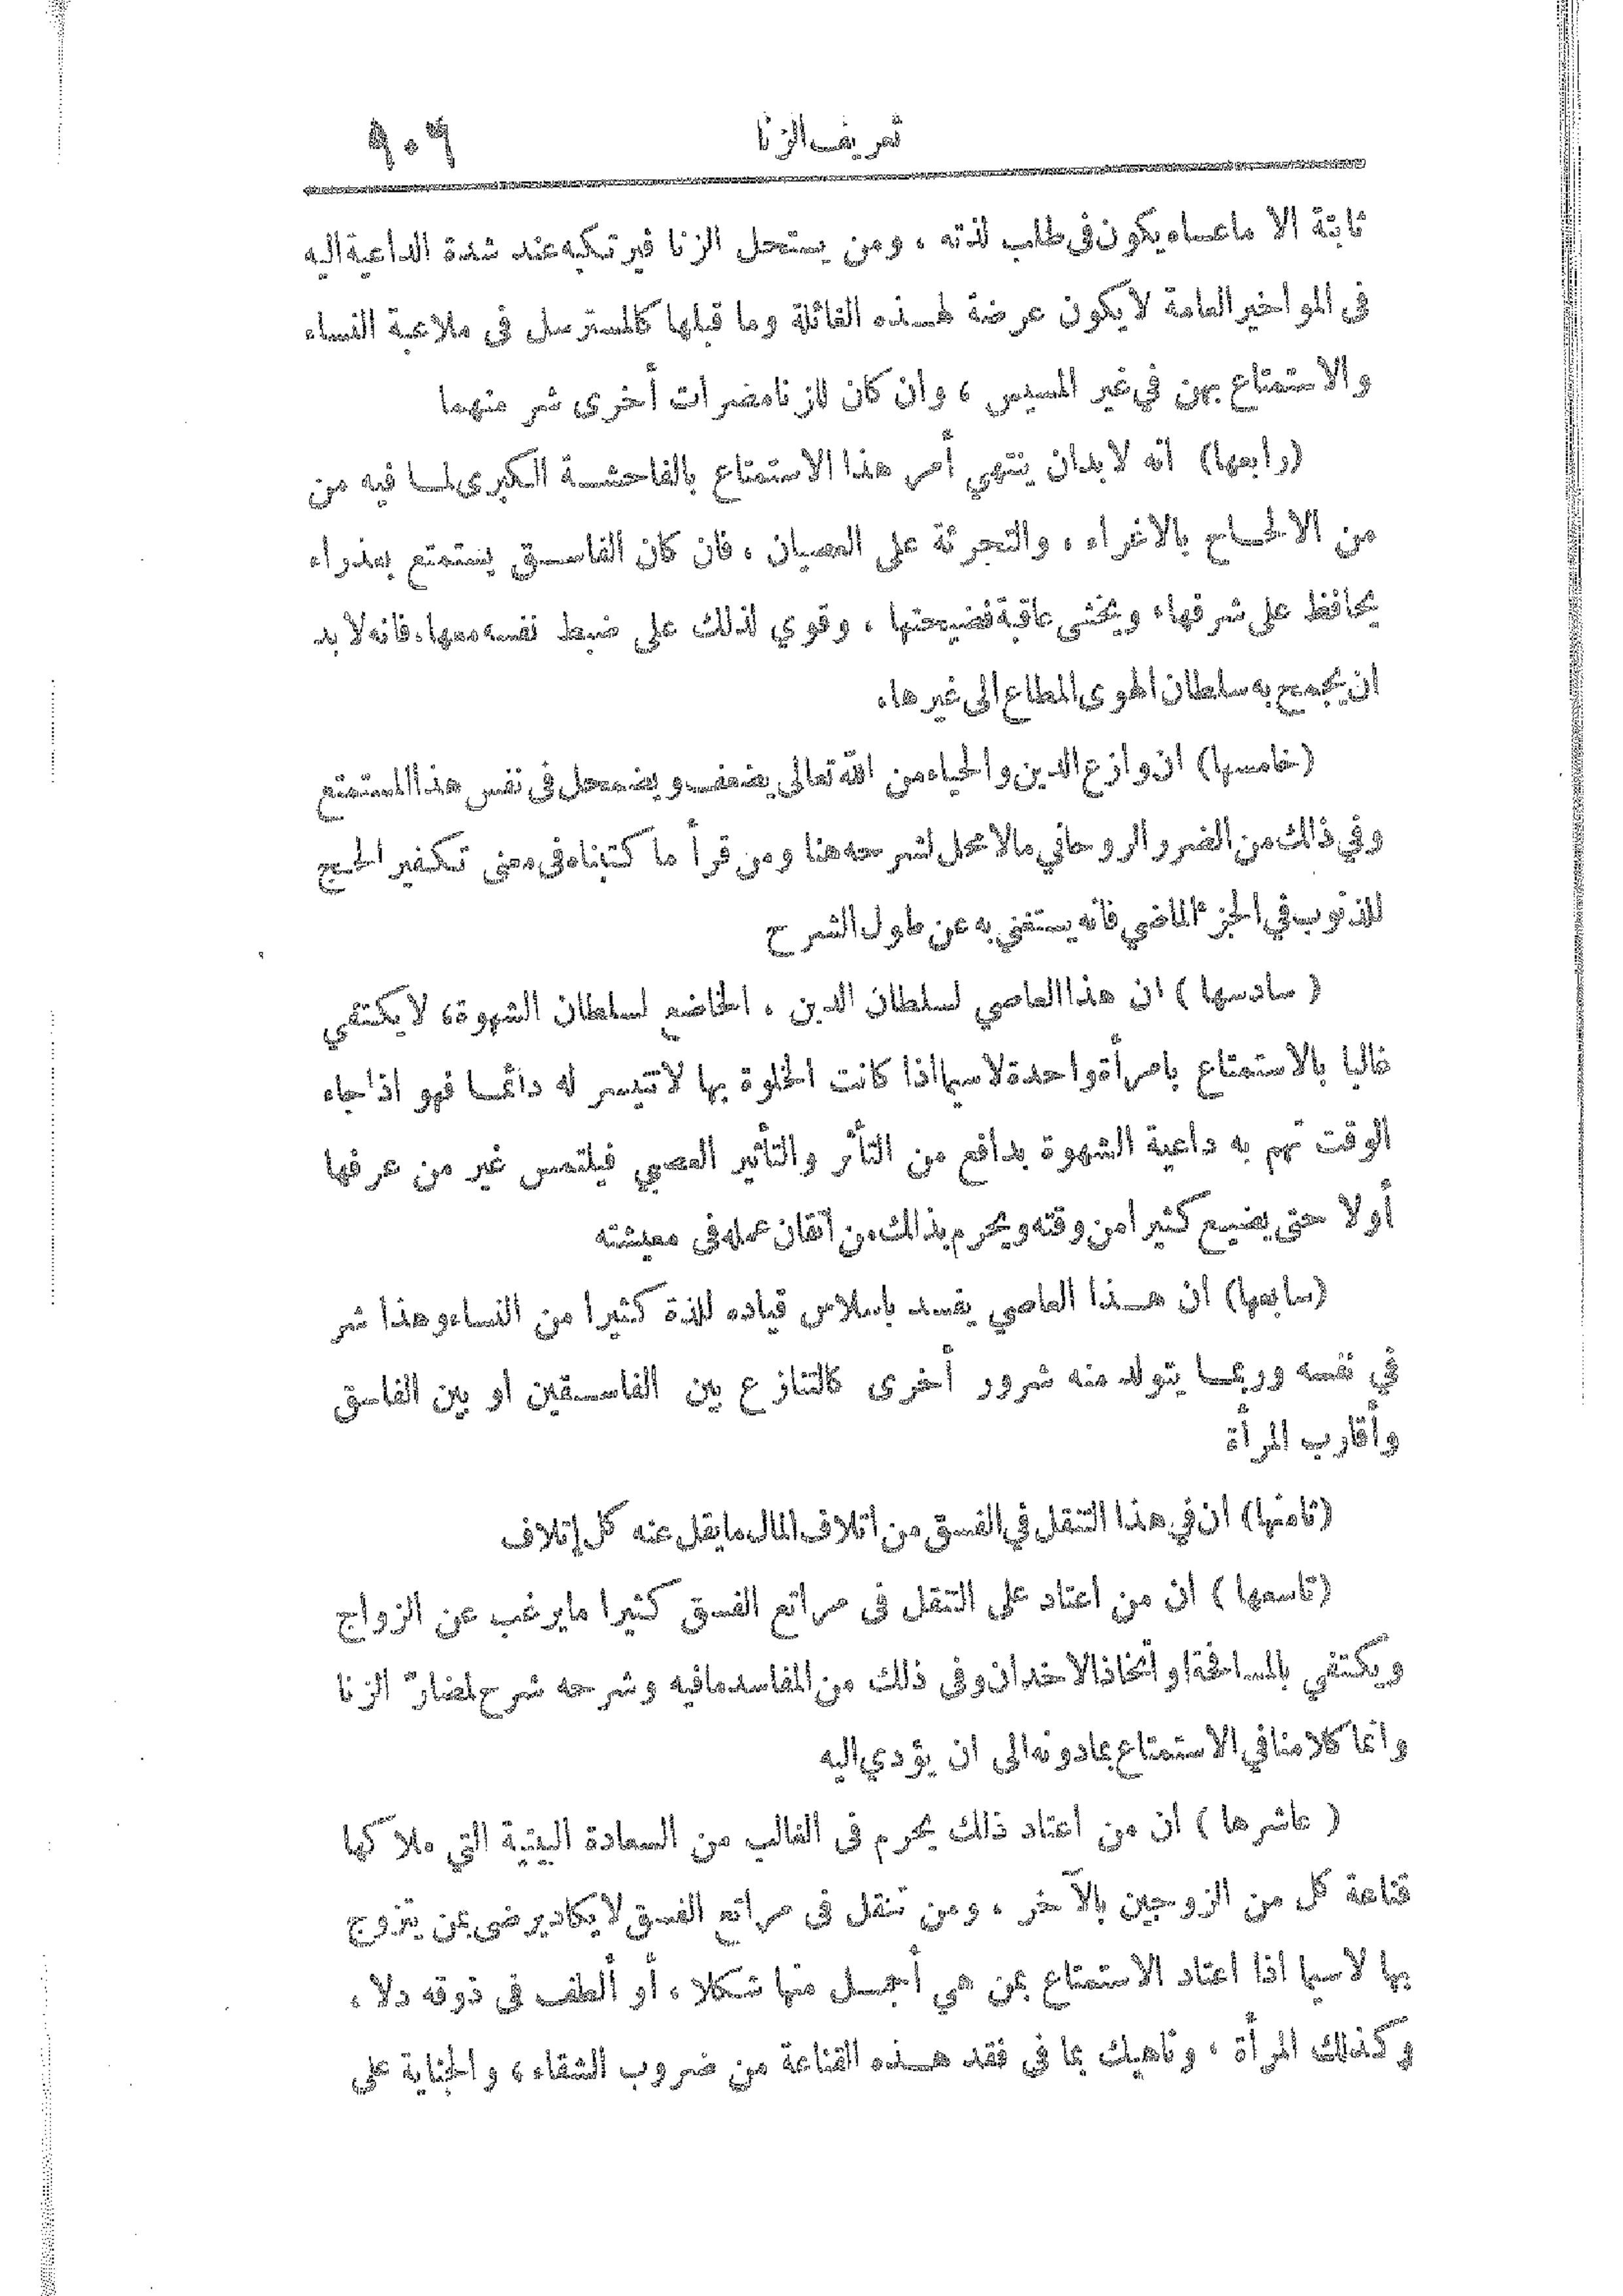 تعريف الزنا ٩٠٦
ثابتة الا ما عساه يكون في طلب لذته ، ومن يستحل الزنا فيرتكبه عند شدة الداعية اليه
فى المواخير العامة لا يكون عرضة لهذه الغائلة وما قبلها كالمسترسل فى ملاعبة النساء
والاستمتاع بهن في غير المسيس ، وان كان للزنا مضرات أخرى شر منهما
(رابعها) انه لا بد ان ينتهي أمر هذا الاستمتاع بالفاحشة الكبرى لما فيه من
من الالحاح بالاغراء ، والتجرئة على العصيان ، فان كان الفاسق يستمتع بعذراء
يحافظ على شرفها، ويخشى عاقبة فضيحتها ، وقوي لذلك على ضبط نفسه معها، فانه لا بد
ان يجمح به سلطان الهوى المطاع الى غيرها.
(خامسها) ان وازع الدين والحياء من الله تعالى يضعف ويضمحل فى نفس هذا المستمتع
وفي ذلك من الضرر الروحاني مالا محل لشرحه هنا ومن قرأ ما كتبناه فى معنى تكفير الحج
للذنوب في الجزء الماضي فانه يستغني به عن طول الشرح
( سادسها ) ان هذا العاصي لسلطان الدين ، الخاضع لسلطان الشهوة، لا يكتفي
غالبا بالاستمتاع بامرأة واحدة لاسيما اذا كانت الخلوة بها لا تتيسر له دائما فهو اذا جاء
الوقت تهم به داعية الشهوة بدافع من التأثر والتأثير العصبي فيلتمس غير من عرفها
أولا حتى يضيع كثيرا من وقته ويحرم بذلك من اتقان عمله فى معيشته
(سابعها) ان هذا العاصي يفسد باسلاس قياده للذة كثيرا من النساء وهذا شر
في نفسه وربما يتولد منه شرور أخرى كالتنازع بين الفاسقين او بين الفاسق
وأقارب المرأة
(ثامنها) ان في هذا التنقل في الفسق من اتلاف المال ما يقل عنه كل إتلاف
(تاسعها ) ان من اعتاد على التنقل فى مراتع الفسق كثيرا ما يرغب عن الزواج
ويكتفي بالمسافحة او اتخاذ الاخدان وفى ذلك من المفاسد مافيه وشرحه شرح لمضارّ الزنا
وانما كلامنا في الاستمتاع بما دونه الى ان يؤدي اليه
( عاشرها ) ان من اعتاد ذلك يحرم فى الغالب من السعادة البيتية التي ملاكها
قناعة كل من الزوجين بالآخر ، ومن تنقل فى مراتع الفسق لا يكاد يرضى بمن يتزوج
بها لا سيما اذا اعتاد الاستمتاع بمن هي أجمل منها شكلا ، أو ألطف فى ذوقه دلا ،
وكذلك المرأة ، وناهيك بما فى فقد هذه القناعة من ضروب الشقاء ، والجناية على